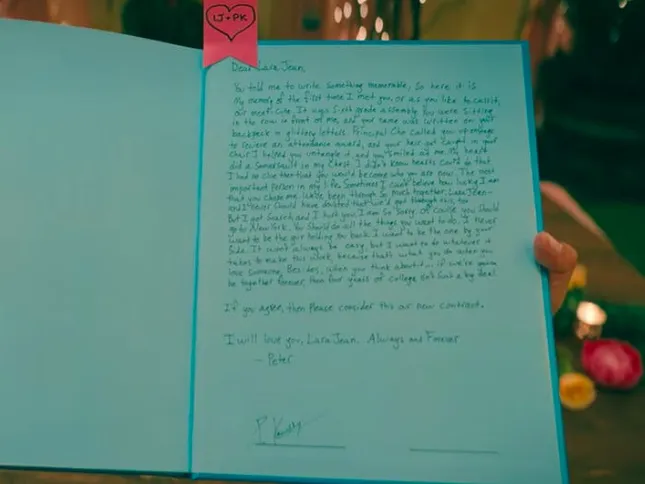 LJ + PK
Dear Lara Jean,
You told me to write something memorable, so here it is
My memory of the first time I met you, or as you like to call it,
our meet-cute. It was sixth grade assembly. You were sitting
in the row in front of me, and your name was written on your
backpack in glittery letters. Principal Cho called you up on stage
to receive an attendance award, and your hair got caught in your
chair. I helped you untangle it, and you smiled at me. My heart
did a somersault in my chest. I didn't know hearts could do that
I had no clue then that you would become who you are now. The most
important person in my life. Sometimes I can't believe how lucky I am
that you chose me. We've been through so much together, Lara Jean-
and I never should have doubted that we'd get through this, too
But I got scared, and I hurt you. I am so sorry. Of course you should
go to New York. You should do all the things you want to do. I never
want to be the guy holding you back. I want to be the one by your
side. It won't always be easy, but I want to do whatever it
takes to make this work, because that's what you do when you
love someone. Besides, when you think about it... if we're gonna
be together forever, then four years of college isn't such a big deal.
If you agree, then please consider this our new contract.
I will love you, Lara Jean. Always and Forever
— Peter
P. K